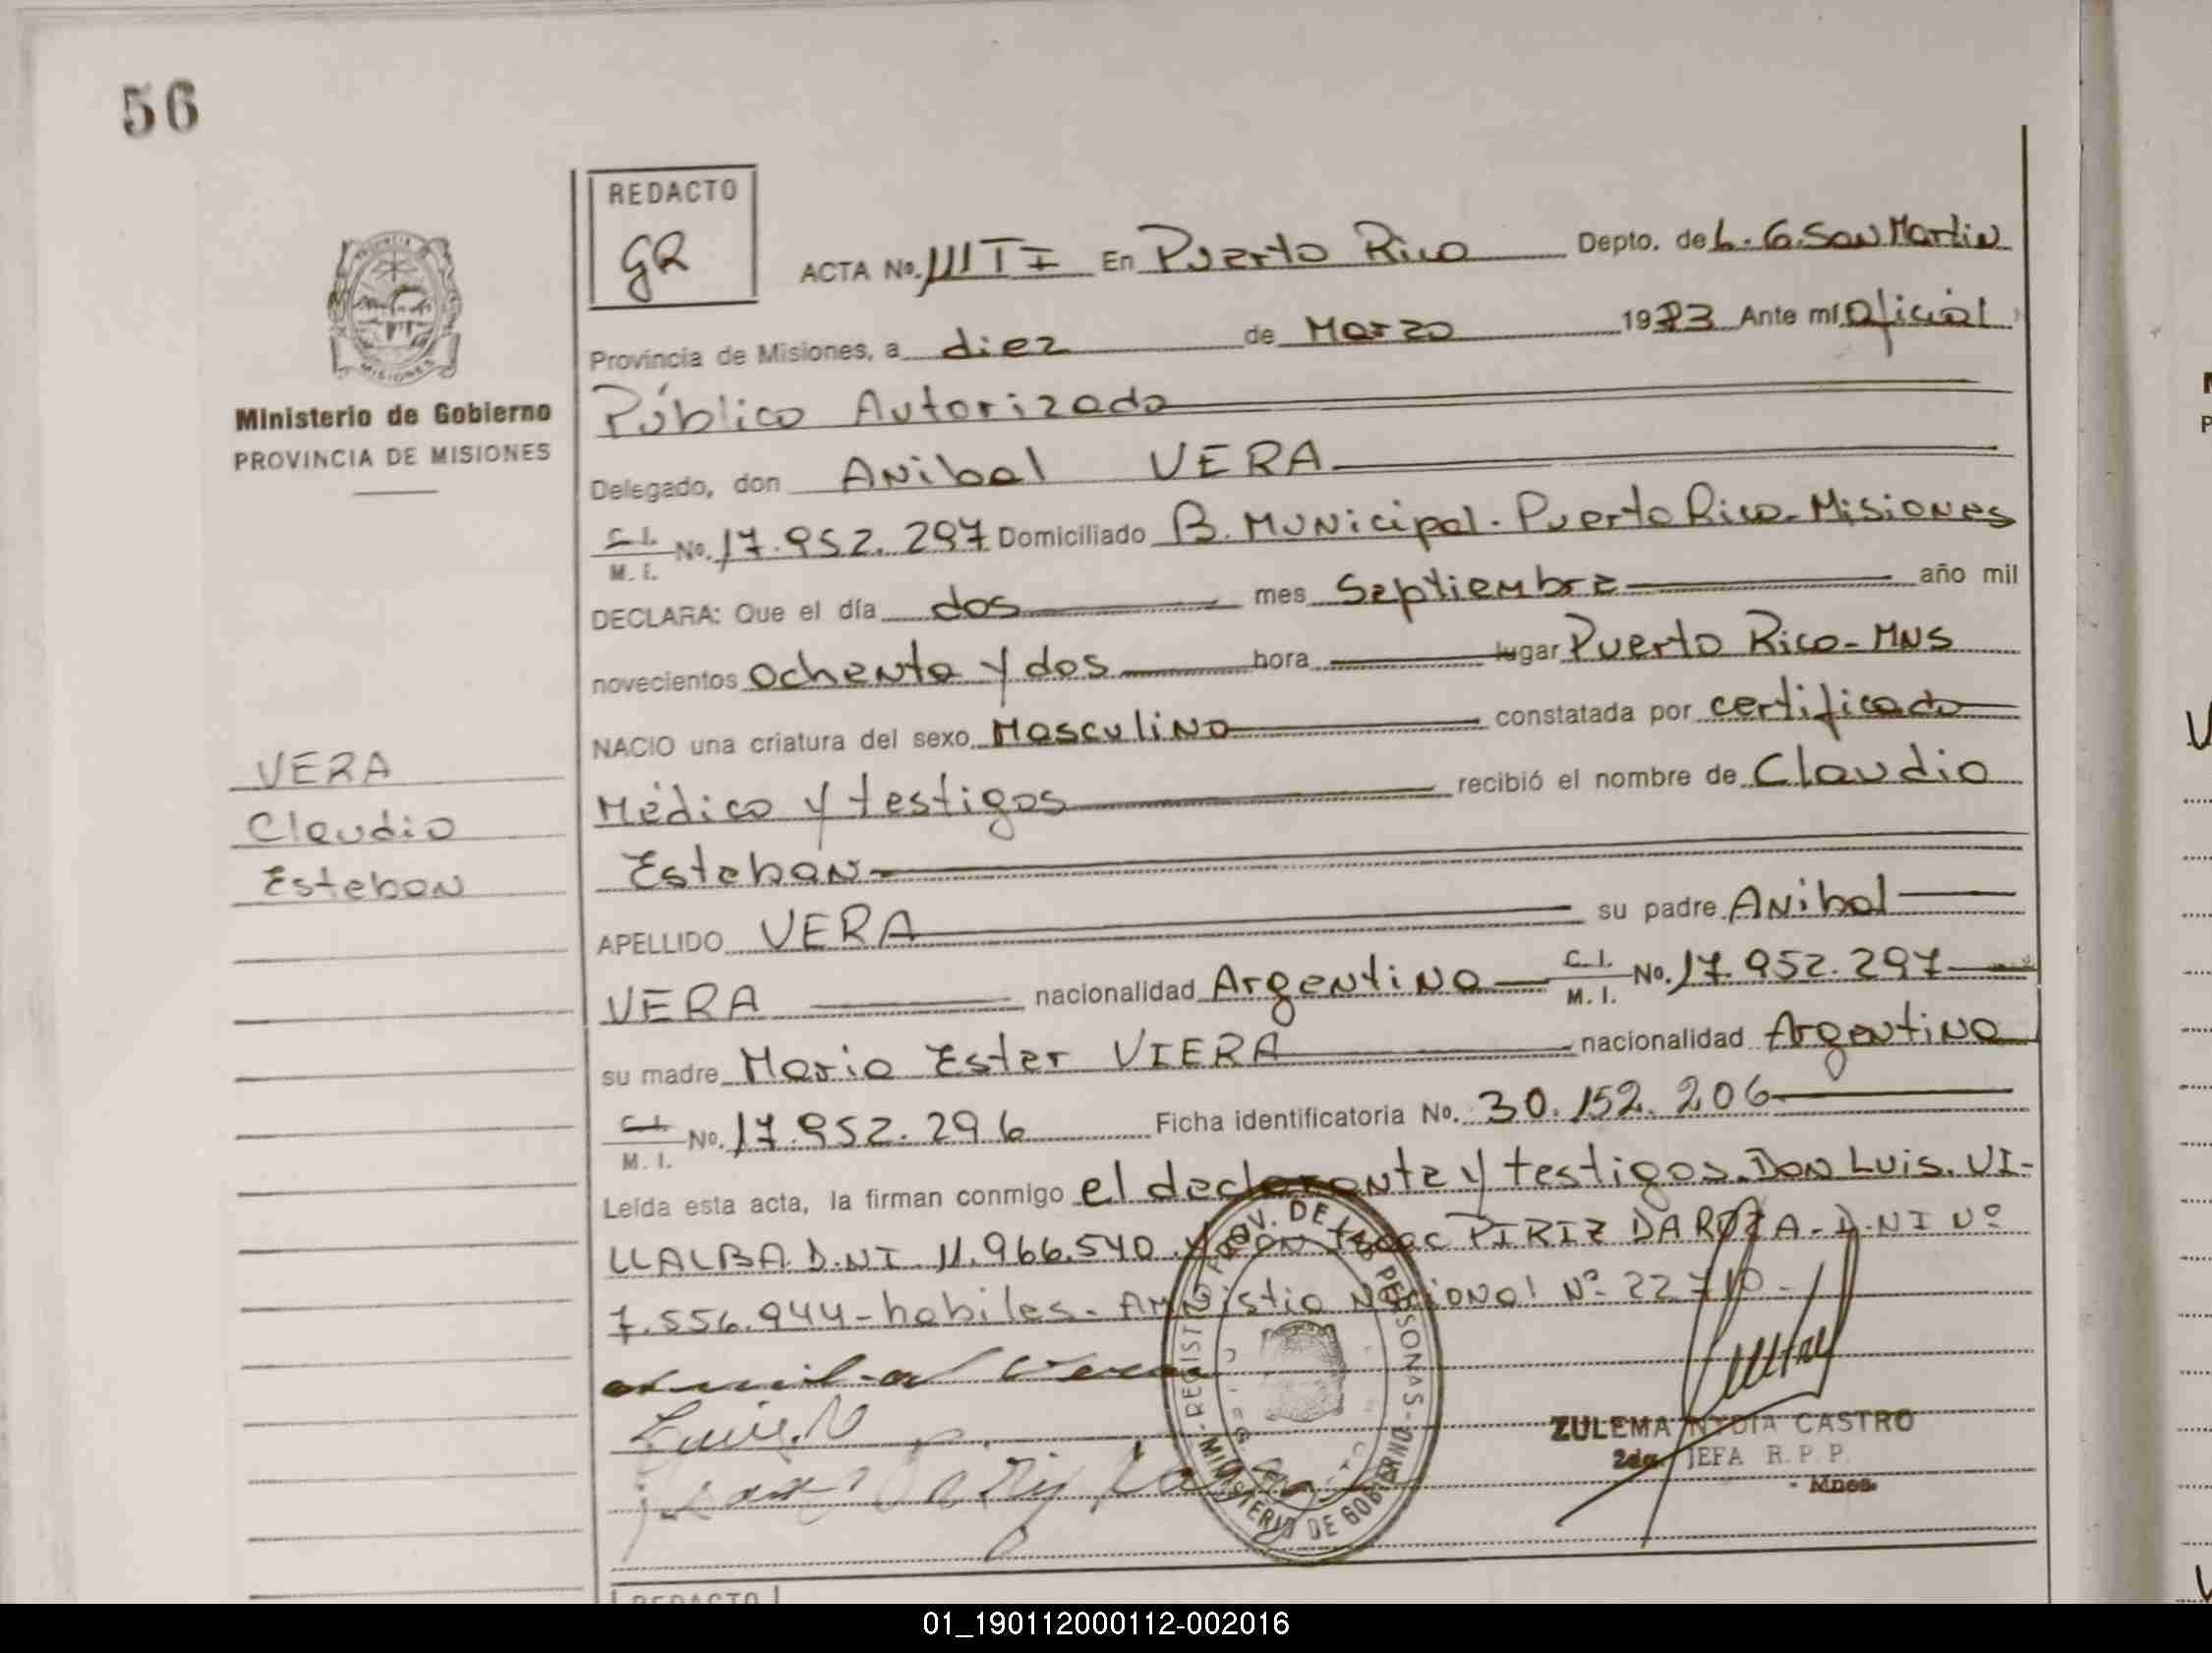 56
REDACTO
GR
ACTA No. 111 T I En Puerto Rico Depto. de L. G. San Martin
Provincia de Misiones, a diez de Marzo 1983 Ante mí Oficial
Público Autorizado
Delegado, don Anibal VERA
C.I. M.I. No. 17.952.297 Domiciliado B. Municipal - Puerto Rico - Misiones
DECLARA: Que el día dos mes Septiembre año mil
novecientos Ochenta y dos hora lugar Puerto Rico - MNS
NACIO una criatura del sexo Masculino constatada por certificado
Médico y testigos recibió el nombre de Claudio
Esteban
APELLIDO VERA su padre Anibal
VERA nacionalidad Argentina C.I. M.I. No. 17.952.297
su madre Maria Ester VIERA nacionalidad Argentina
C.I. M.I. No. 17.952.296 Ficha identificatoria No. 30.152.206
Leída esta acta, la firman conmigo el declarante y testigos. Don Luis. VI-
LLALBA D.NI. 11.966.540 y Don Isaac PIRIZ DA ROZA - D.NI Nº
7.556.944 - habiles - Amnistia Nacional Nº 22710 -
Anibal Vera
Luis.V
ZULEMA NYDIA CASTRO
2da JEFA R. P. P.
- Mnes.
REGISTRO PROV. DE LAS PERSONAS - MINISTERIO DE GOBIERNO
PROVINCIA
MISIONES
Ministerio de Gobierno
PROVINCIA DE MISIONES
VERA
Claudio
Esteban
REDACTO
01_190112000112-002016